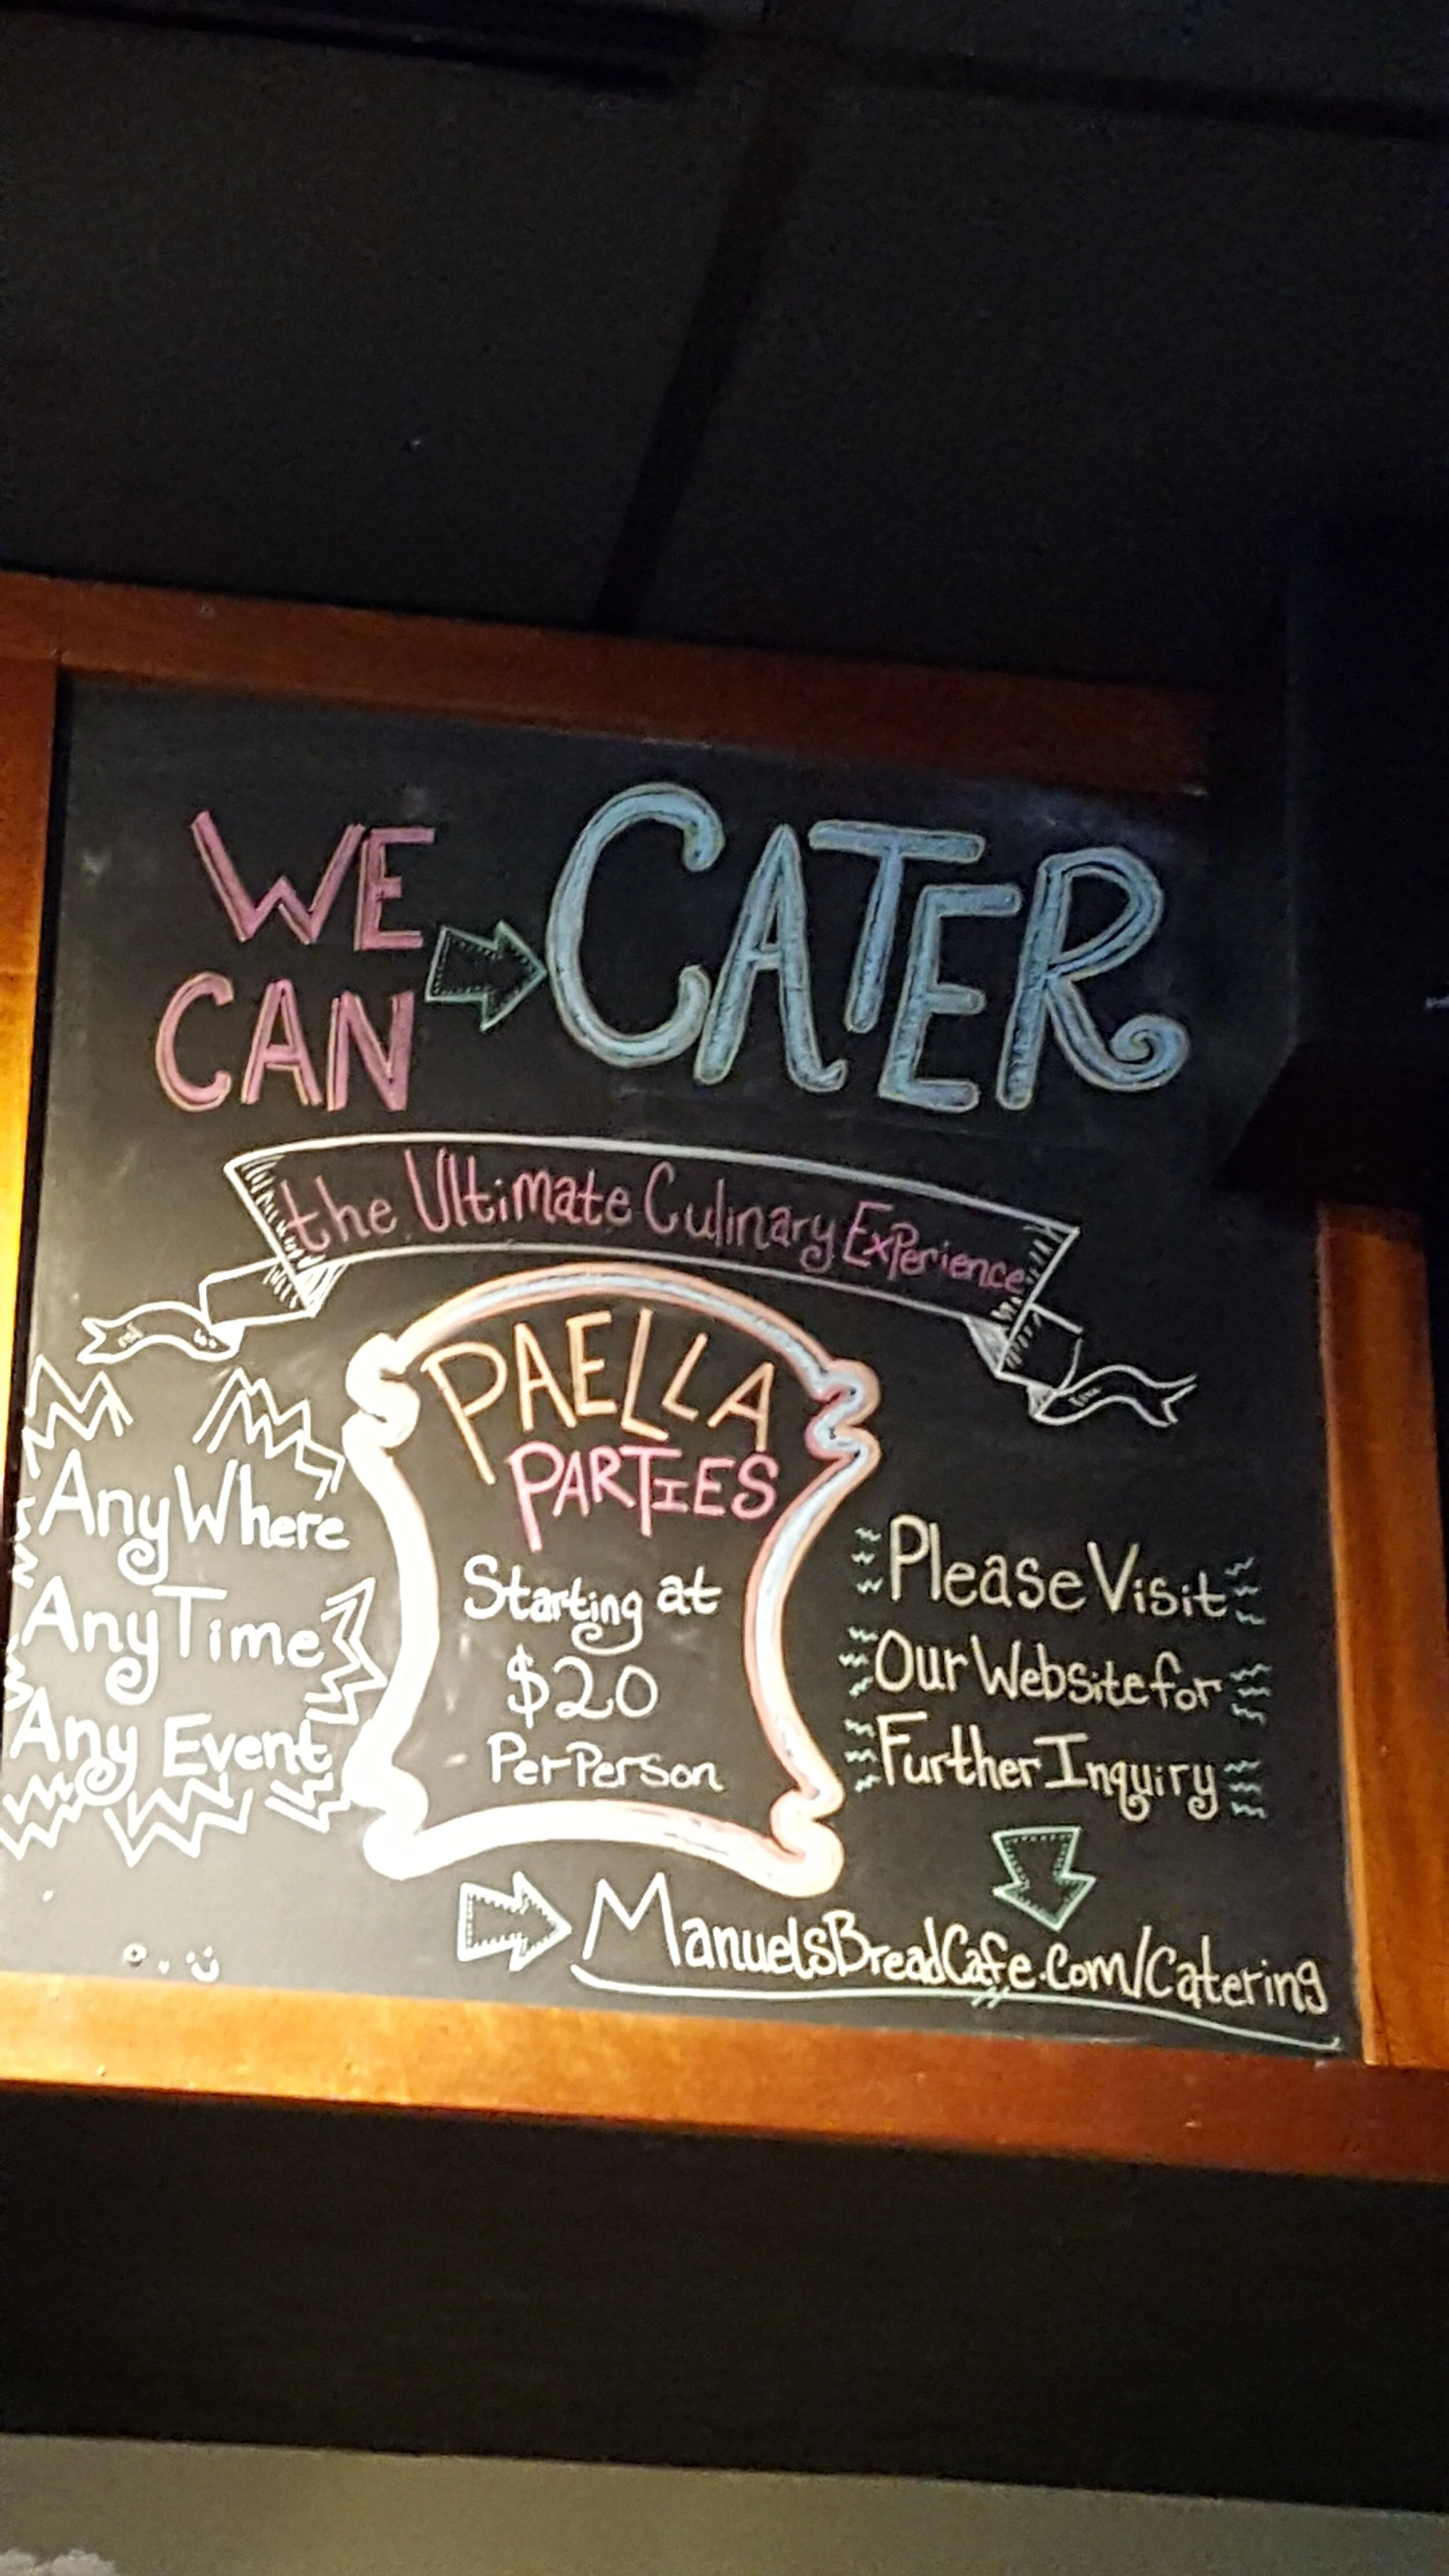 WE
CAN
CATER
the Ultimate Culinary Experience
PAELLA
PARTIES
Starting at
$20
Per Person
AnyWhere
AnyTime
Any Event
Please Visit
Our Website for
Further Inquiry
ManuelsBreadCafe.Com/Catering